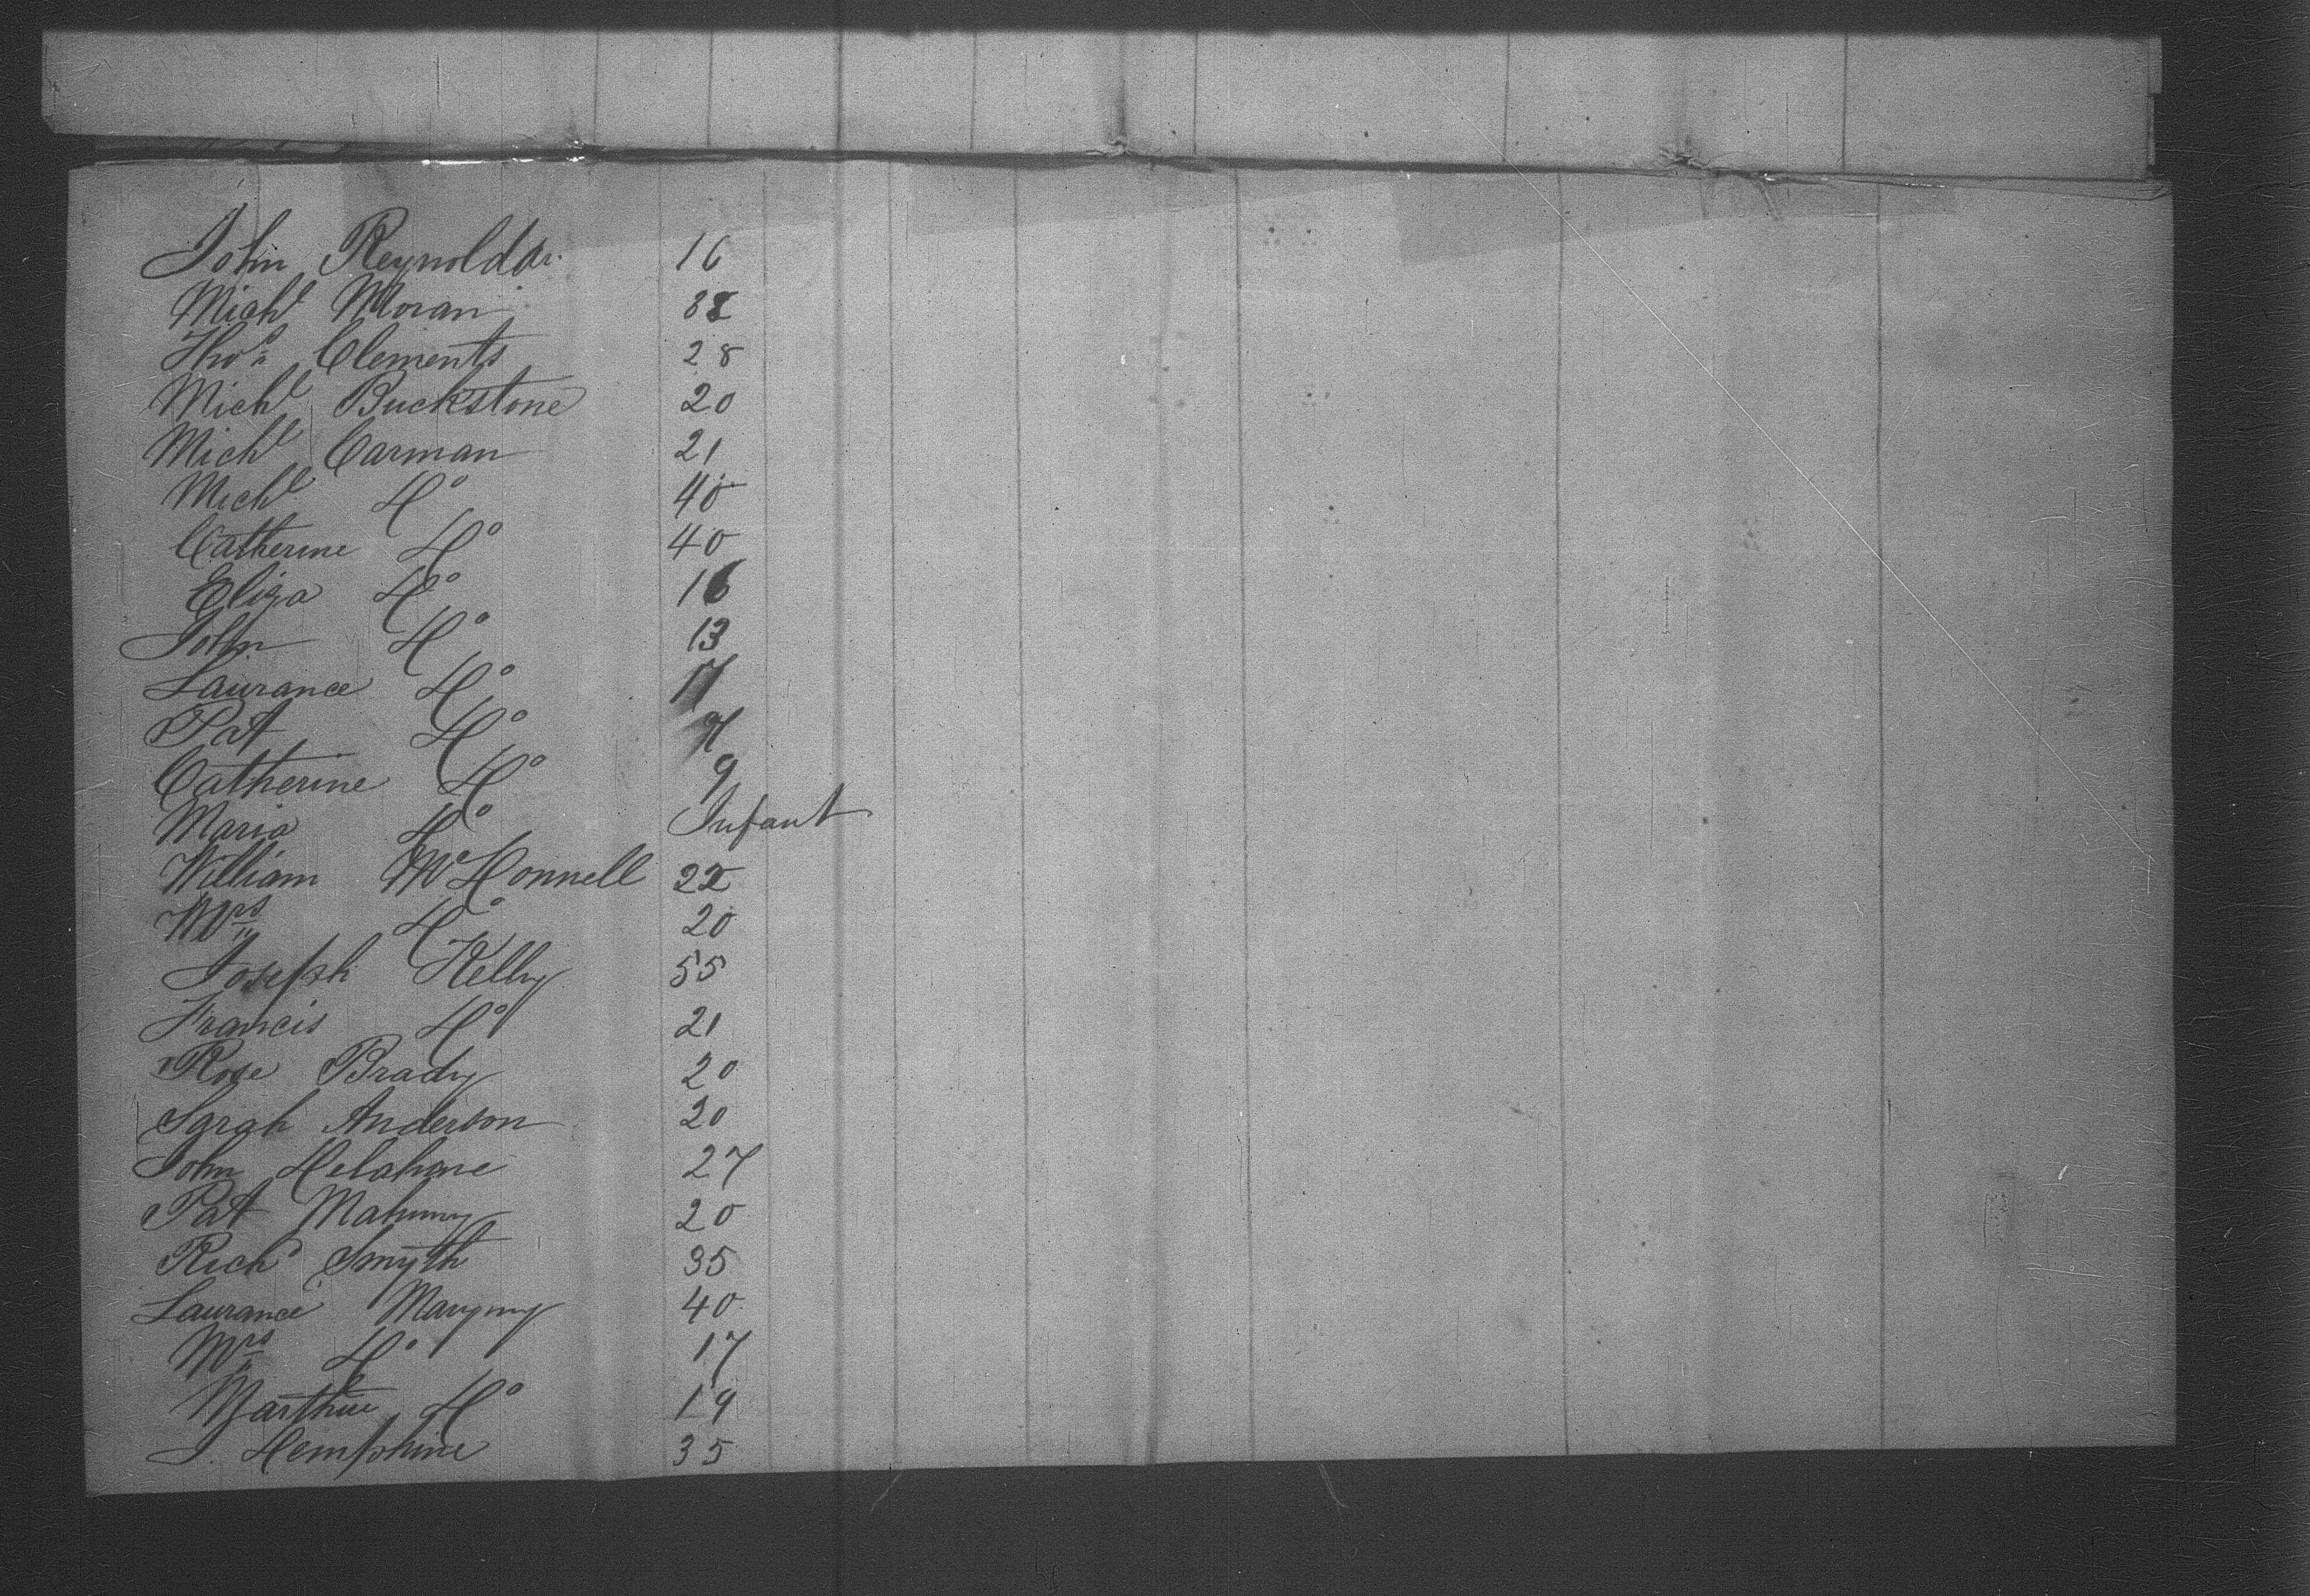 John Reynolds 16
Michl Moran 32
Thos Clements 28
Michl Buckstone 20
Michl Carman 21
Michl Do 40
Catherine Do 40
Eliza Do 16
John Do 13
Laurance Do 11
Pat Do
Catherine Do 9
Maria Do Infant
William McDonnell 22
Mrs Do 20
Joseph Kelly 55
Francis Do 21
Rose Brady 20
Sarah Anderson 20
John Delahane 27
Pat Mahuny 20
Richd Smyth 35
Laurance 40
Mrs Do 17
Do 19
J. Demphine 35